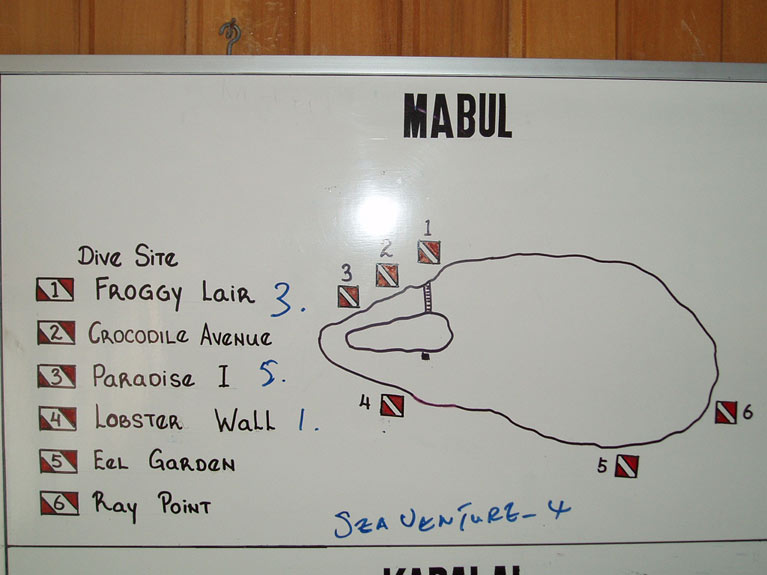 MABUL
Dive Site
1 FROGGY LAIR 3.
2 CROCODILE AVENUE
3 PARADISE I 5.
4 LOBSTER WALL 1.
5 EEL GARDEN
6 RAY POINT
1
2
3
4
5
6
SEAVENTURE - 4